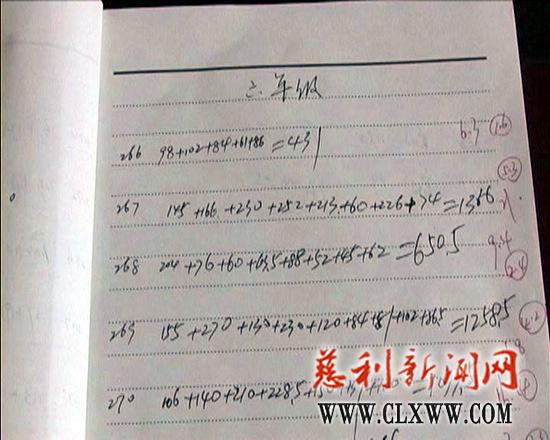 二年级
266 98+102+84+61+86=431 6.3 10.6
5.3
267 185+166+230+252+213+60+226+74=1366
268 204+76+60+63.5+88+52+45+62=650.5 9.4
2.4
269 155+270+130+230+120+84+81+102+86.5=1258.5 4.2
270 106+140+210+228.5
慈利新闻网
WWW.CLXWW.COM